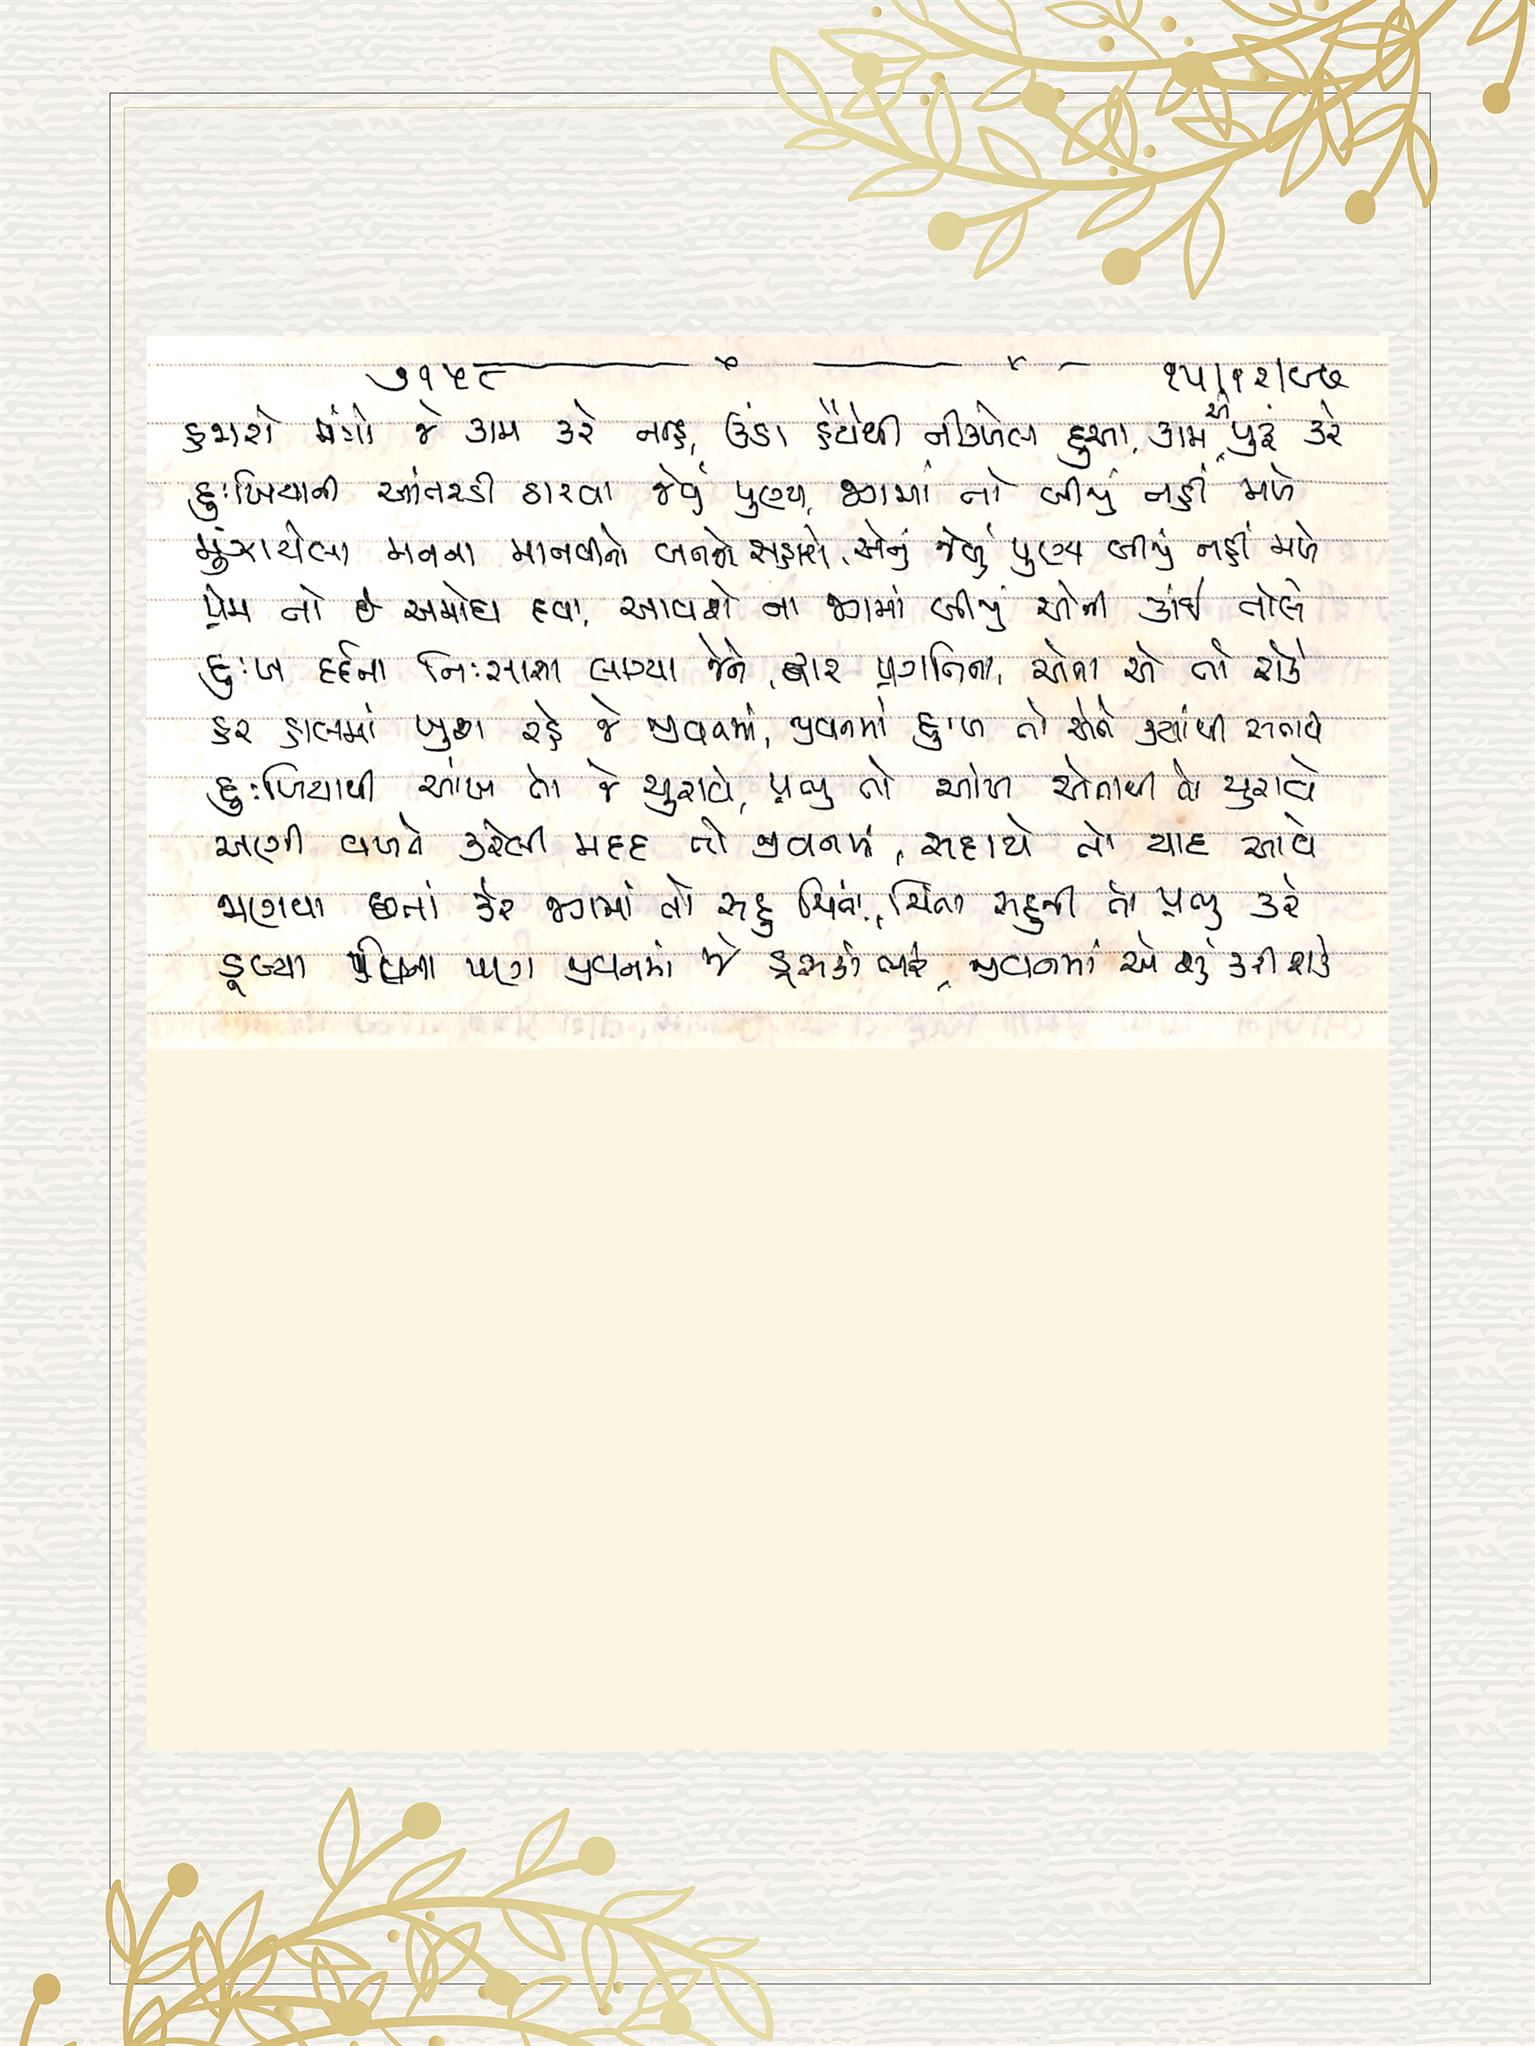 ૭૧૫૮ ૧૫/૧૨/૯૭
હજારો મંત્રો જે કામ કરે નહિ, ઉંડા હૈયેથી નીકળેલા દુઆ, કામ એ પુરૂં કરે
દુઃખિયાની આંતરડી ઠારવા જેવું પુણ્ય, જગમાં તો બીજું નહીં મળે
મુંઝાયેલા મનના માનવીનો બનજે સહારો, એના જેવું પુણ્ય બીજું નહીં મળે
પ્રેમ તો છે અમોઘ દવા, આવશે ના જગમાં બીજું એની કાંઈ તોલે
દુઃખ દર્દના નિઃસાસા લાગ્યા જેને, દ્વાર પ્રગતિના, એના એ તો રોકે
હર હાલમાં ખુશ રહે જે જીવનમાં, જીવનમાં દુઃખ તો એને ક્યાંથી સતાવે
દુઃખિયાથી આંખ તો જે ચુરાવે, પ્રભુ તો આંખ એનાથી તો ચુરાવે
અણી વખતે કરેલી મદદ તો જીવનમાં, સદાયે તો યાદ આવે
ભણવા છતાં કરે જગમાં તો સહુ ચિંતા, ચિંતા સહુની તો પ્રભુ કરે
ડૂબ્યા વિના પણ જીવનમાં જે ડૂસકાં ભરે, જીવનમાં એ શું કરી શકે